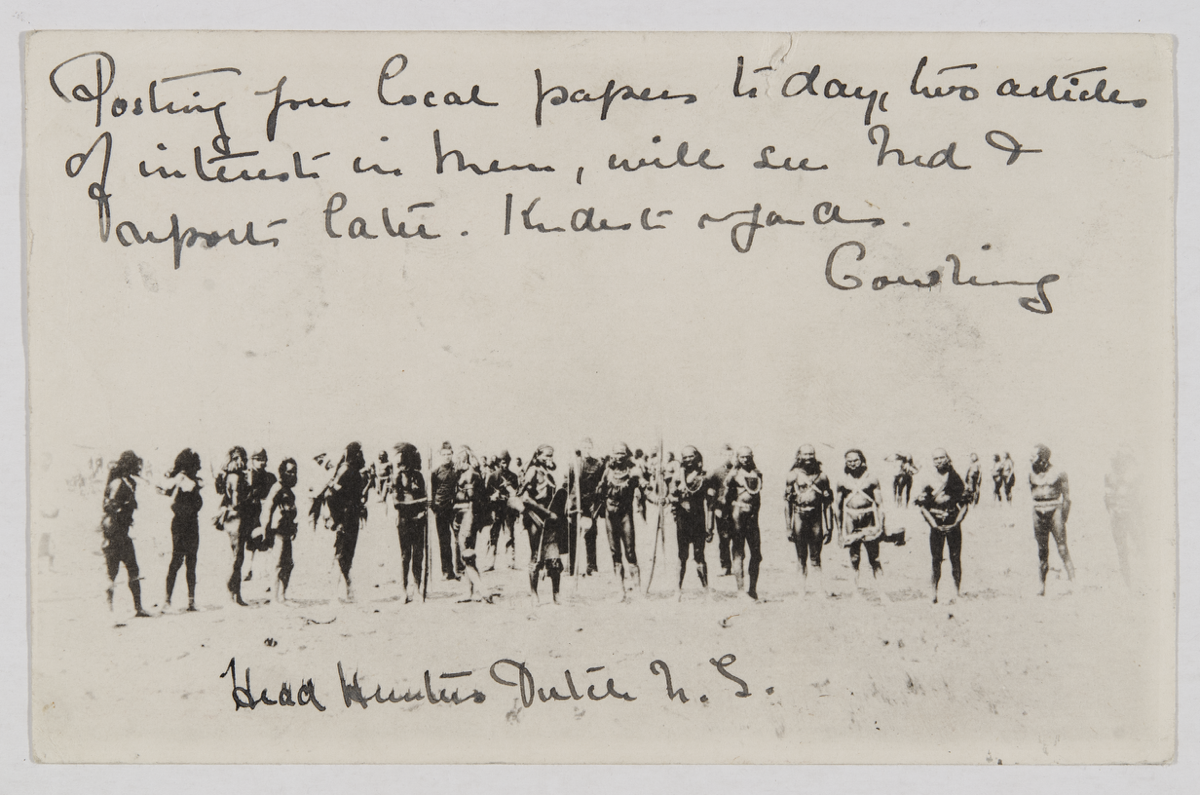 Posting you local papers to day, two articles
of interest in them, will see Fred &
reports later. Kindest regards.
Cowling
Head Hunters Dutch N. G.